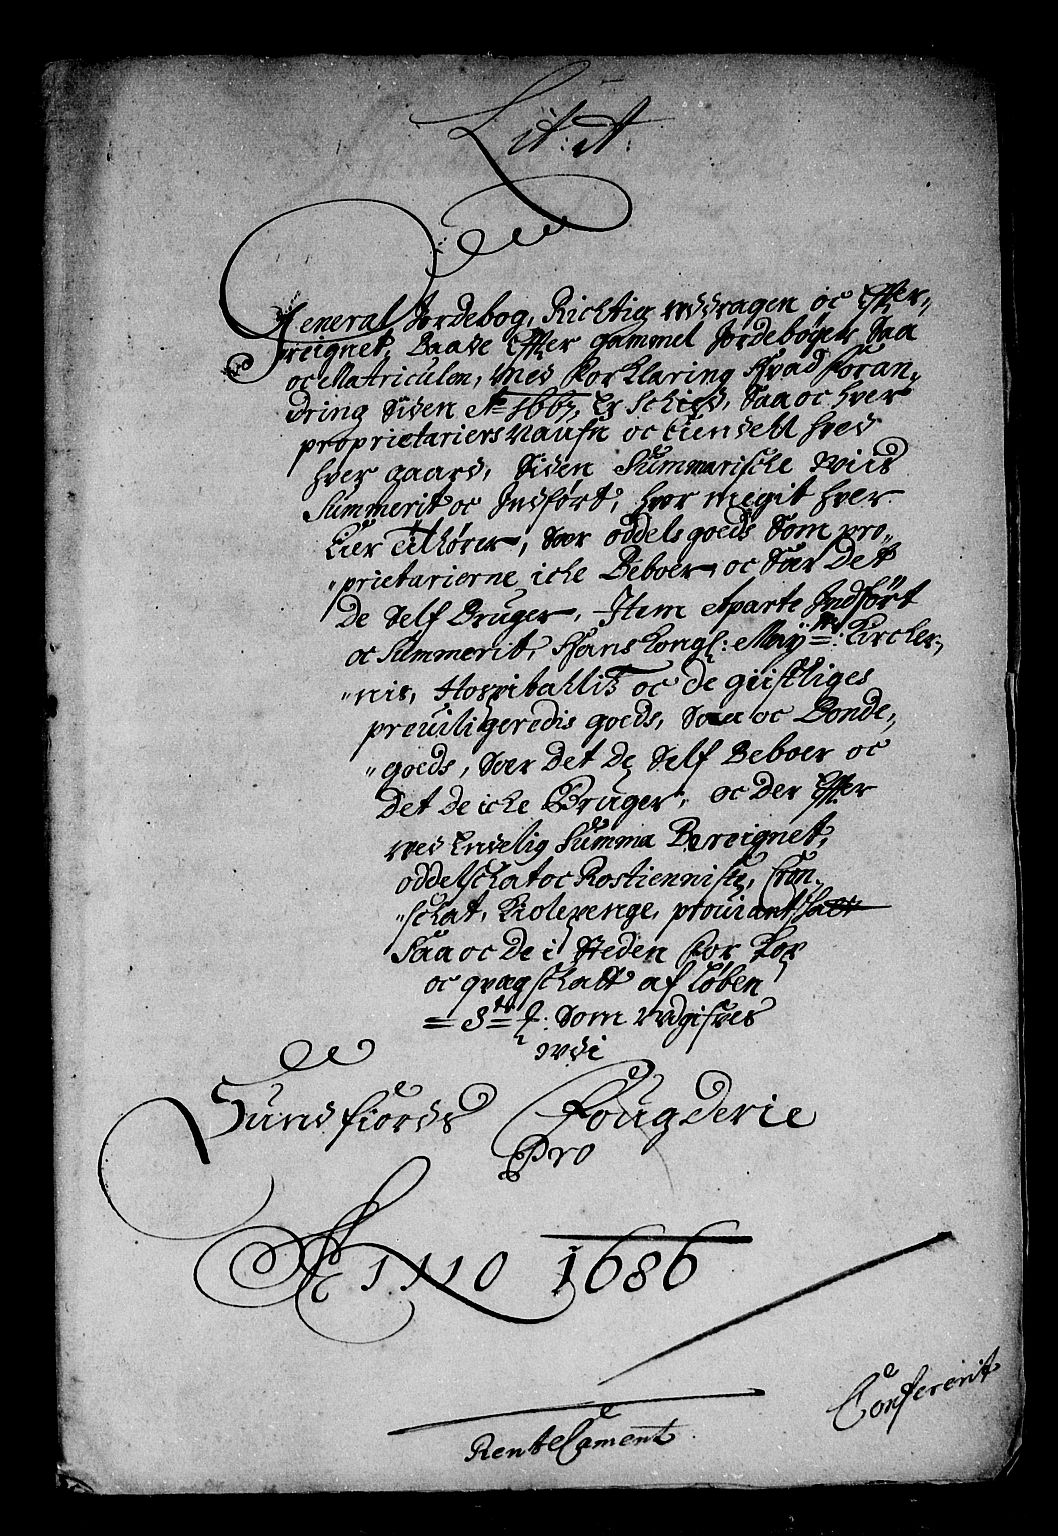 Lit: A:
General Jordebog, Richtig uddragen oc Effter„
reignet, Baade Effter gammel Jordebøger Saa
oc Matriculen, med forklaring hvad foran„
dring Siden Ao 1667, Er Scheed, Saa oc hver
proprietariers Naufn oc Eiendell hved
hver gaard, Siden Summarische Viis
Summerit oc Indført, hvor megit hver
Eier tilhører, Saer oddels goeds Som pro„
„prietarierne iche Beboer, oc Saer Det
De Self Bruger, Item Aparte Indført
oc Summerit, Hans Kongl: Mayts: Kircker„
„nis, Hospitallits oc de giistliges
preuiligeredis goeds, Saa oc Bonde„
„goeds, Saer Det De Self Beboer oc
Det de iche Bruger, oc Der Effter
ved Endelig Summa Bereignet,
oddelschat oc Rostienniste,
„schat, Kiolepenge, prouiant schatt
Saa oc De i Steden for Kor
oc qvægschatt af løben
= 3 = Som udgifves
udi
Sundfiords Fougderie
Pro
Anno 1686
Conffererit
RenteCament